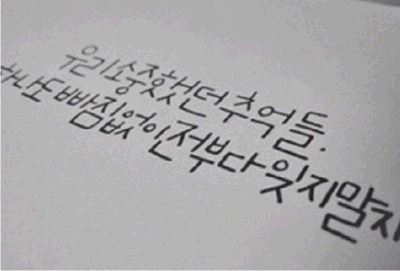 우리 소중했던 추억들.
하나도 빠짐없이 전부 다 잊지 말자